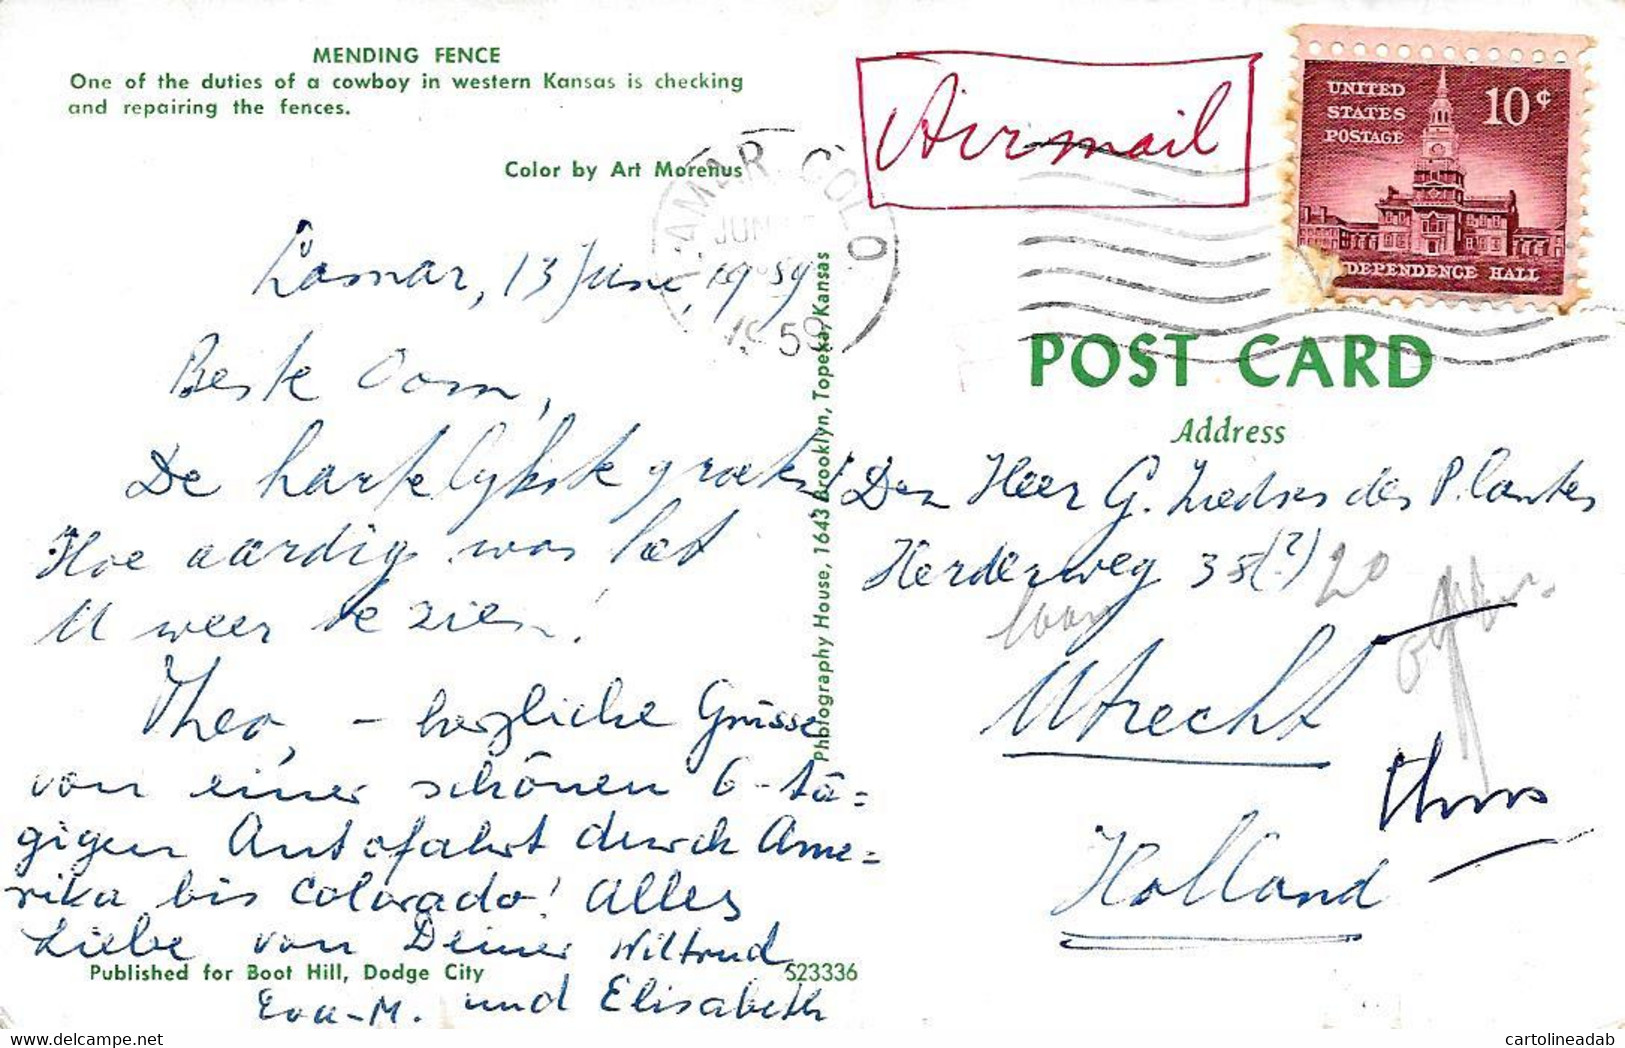 MENDING FENCE
One of the duties of a cowboy in western Kansas is checking
and repairing the fences.
Color by Art Morenus
Lamar, 13 June, 1959
Beste Oom,
De hartelijkste groeten!
Hoe aardig was het
U weer te zien!
Theo, – herzliche Grüsse
von einer schönen 6-tä=
gigen Autofahrt durch Ame=
rika bis Colorado! Alles
Liebe von Deiner Wiltrud
Eva-M. und Elisabeth
Published for Boot Hill, Dodge City
S23336
Photography House, 1643 Brooklyn, Topeka, Kansas
LAMAR, COLO
JUN
1959
Airmail
UNITED
STATES
POSTAGE
10¢
INDEPENDENCE HALL
POST CARD
Address
Den Heer G. des Plantes
Herderweg 35(?) 20
Utrecht
Holland
www.delcampe.net
cartolineadab